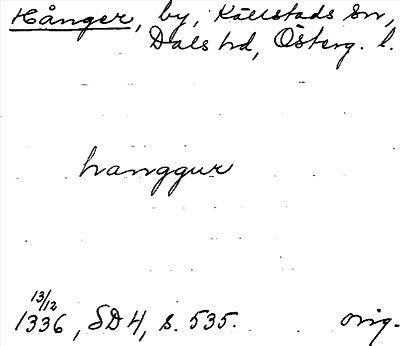 Hånger, by, Källstads sn,
Dals hd, Österg. l.
hanggur
13/12
1336, SD 4, s. 535. orig.